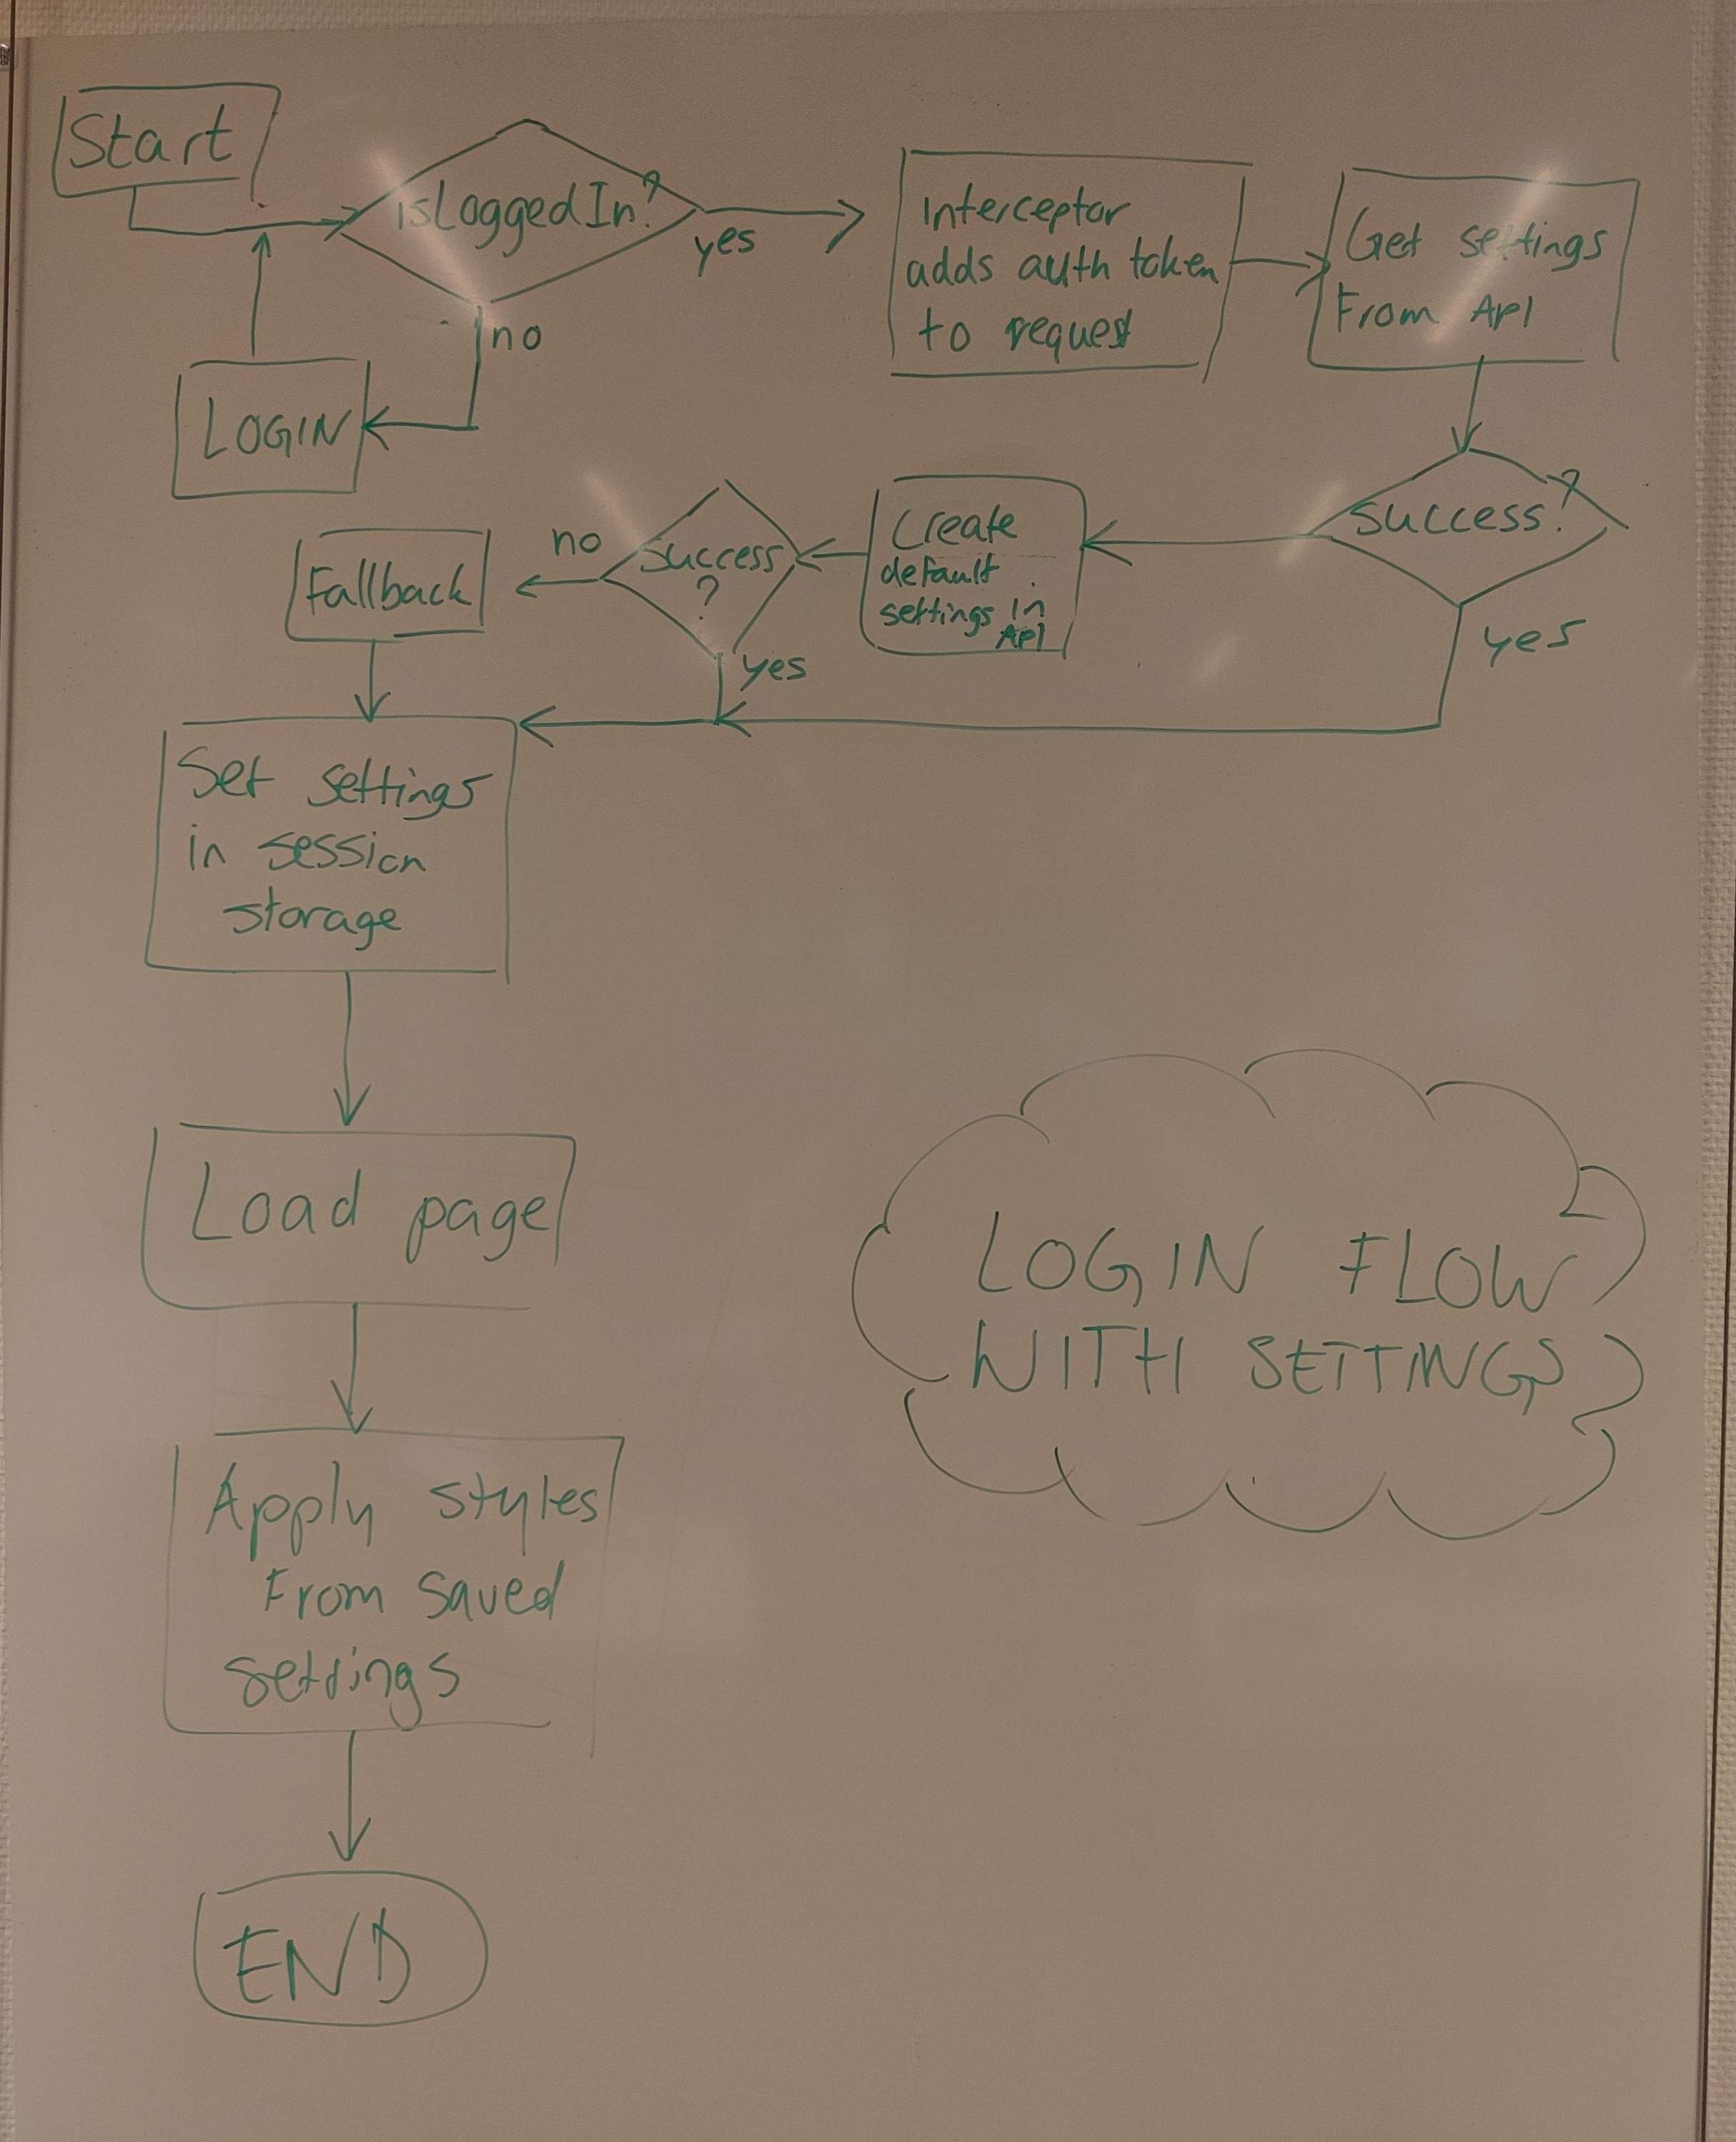 Start
isLoggedIn?
yes
no
LOGIN
Interceptor
adds auth token
to request
Get settings
From API
success?
yes
Create
default
settings in
API
success
?
no
yes
Fallback
Set settings
in session
storage
Load page
Apply styles
From saved
settings
END
LOGIN FLOW
WITH SETTINGS